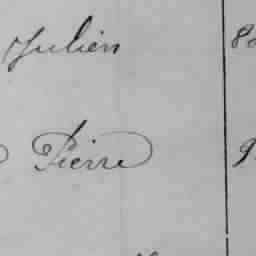 Julien
Pierre